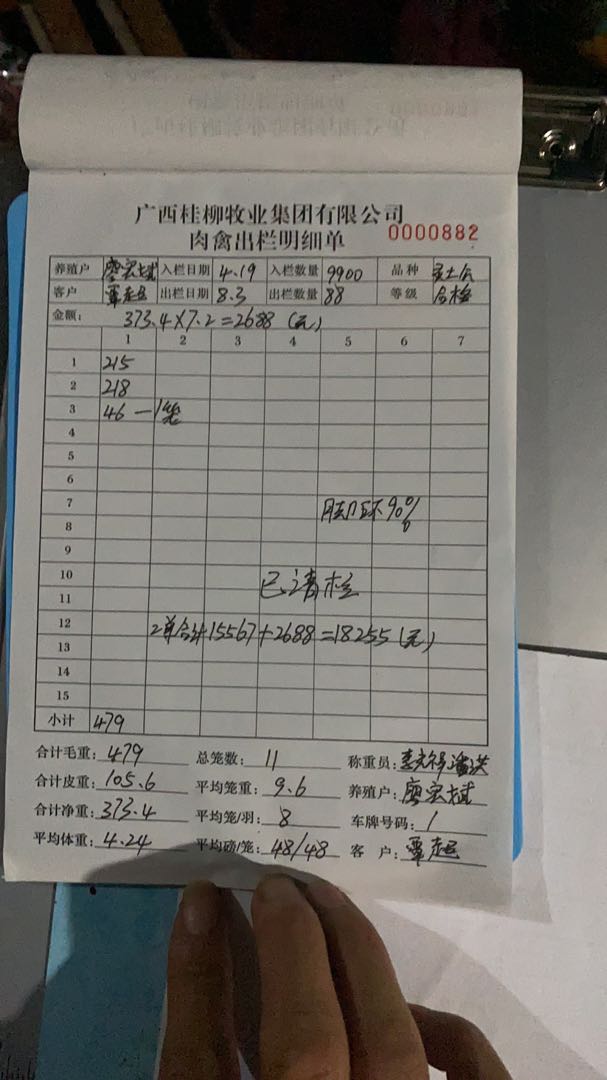 广西桂柳牧业集团有限公司
肉禽出栏明细单 0000882
养殖户 廖宏斌 入栏日期 4.19 入栏数量 9900 品种
客户 覃超 出栏日期 8.3 出栏数量 88 等级 合格
金额： 373.4×7.2=2688（元）
1 2 3 4 5 6 7
1 215
2 218
3 46 一1笼
4
5
6
7 脚环90%
8
9
10 已请检
11
12 2单合计15567+2688=18255（元）
13
14
15
小计 479
合计毛重：479 总笼数：11 称重员：
合计皮重：105.6 平均笼重：9.6 养殖户：廖宏斌
合计净重：373.4 平均笼/羽：8 车牌号码：1
平均体重：4.24 平均磅/笼：48/48 客户：覃超